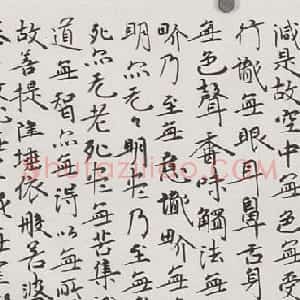 減是故空中無色無受
行識無眼耳鼻舌身
無色聲香味觸法無
界乃至無意識界無
明亦无々明盡乃至無
死亦无老死盡無苦集
道無智亦無得以無所
故菩提薩埵依般若波
Shufaziliao.com